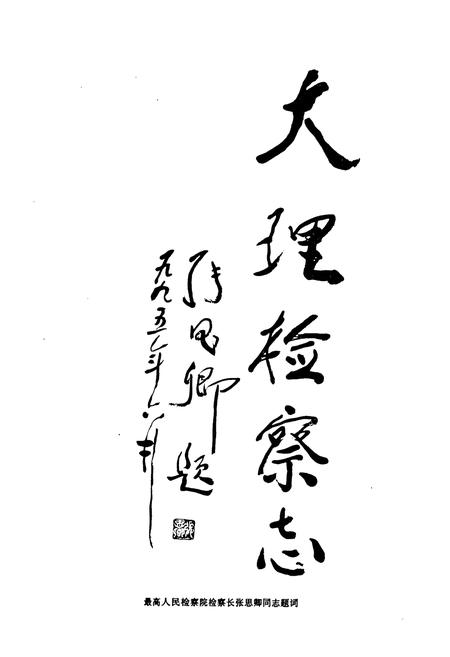 大理检察志
张思卿题
一九九五年六月
最高人民检察院检察长张思卿同志题词